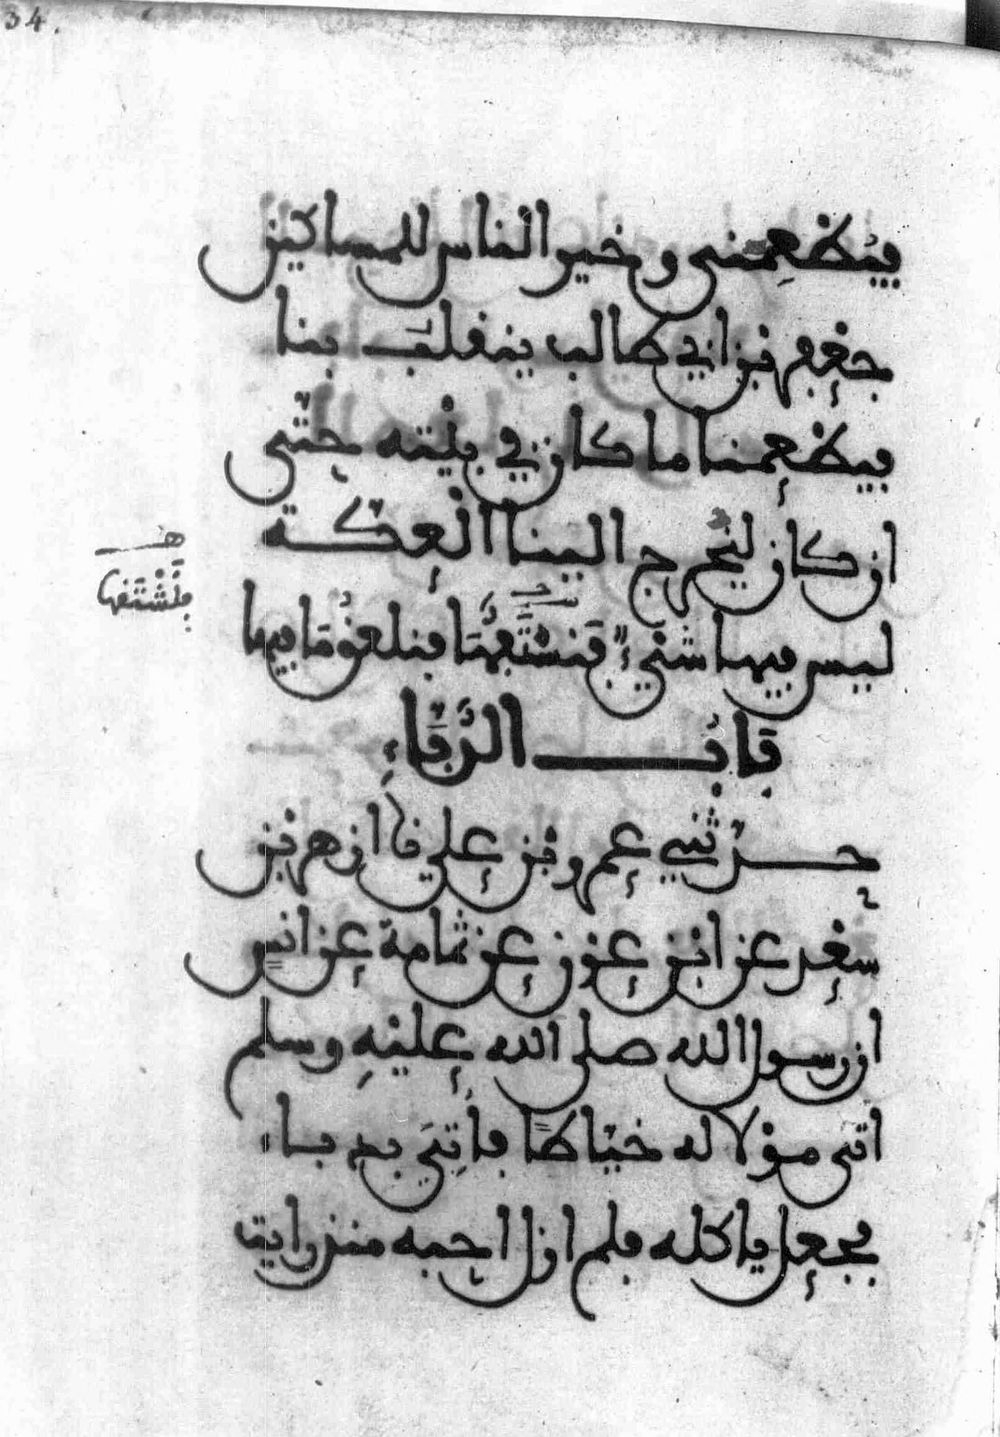 34.
فيُطْعِمنى وخير الناس للمساكين
جعفر بن ابي طالب ينقلب بنا
فيطْعِمنا ما كان في بيْته حتّى
ان كان ليُخرج الينا الْعكّة
ليس فيها شىْءٌ فنشتَفُّهَا فنلعقُ مَا فيها
فلنشتفها
بَابُ الدُّبَّاءِ
حدّثني عمرو بن علي نا ازهر بن
سعْد عن ابن عون عن ثمامة عن انس
ان رسول الله صلى الله عليْهِ وسلم
اتى مَوْلا له خيّاطًا فأُتِيَ بدباء
فجعل ياكله فلم ازل احبه منذ رايت